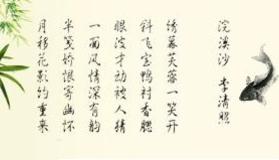 浣溪沙 李清照
绣幕芙蓉一笑开
斜飞宝鸭衬香腮
眼波才动被人猜
一面风情深有韵
半笺娇恨寄幽怀
月移花影约重来